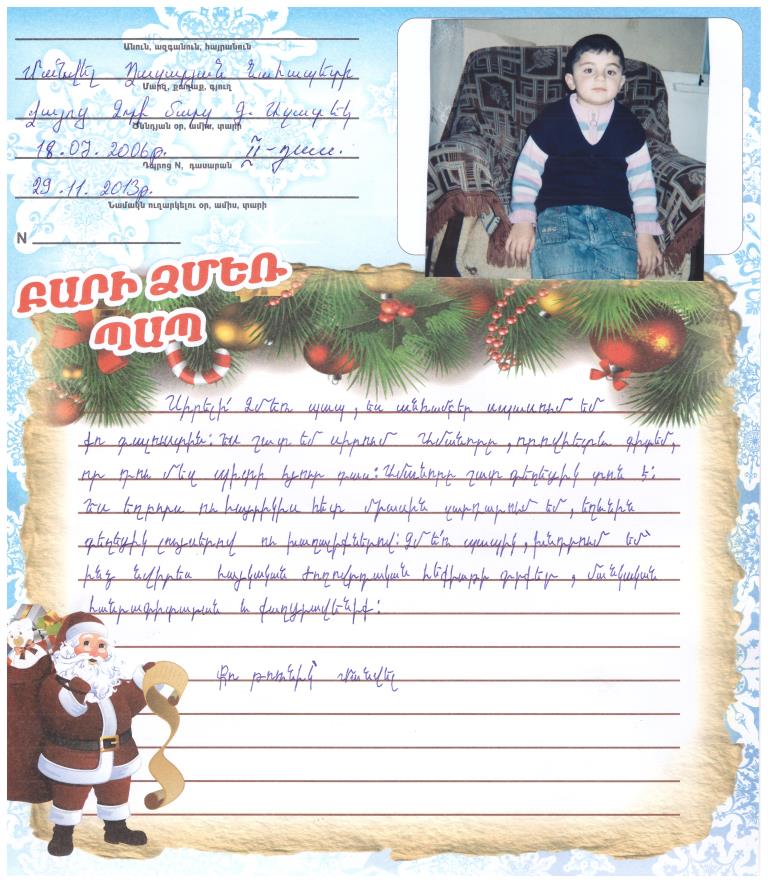 Անուն, ազգանուն, հայրանուն
Մանվել Ղազարյան Նահապետի
Մարզ, քաղաք, գյուղ
Վայոց Ձորի մարզ գ. Ազատեկ
Ծննդյան օր, ամիս, տարի
18.07.2006թ. II-դաս.
Դպրոց N, դասարան
29.11.2013թ.
Նամակն ուղարկելու օր, ամիս, տարի
N
ԲԱՐԻ ՁՄԵՌ
ՊԱՊ
Սիրելի՛ Ձմեռ պապ, ես անհամբեր սպասում եմ
քո գալուստին: Ես շատ եմ սիրում Ամանորը, որովհետև գիտեմ,
որ դու մեզ պիտի հյուր գաս: Ամանորը շատ գեղեցիկ տոն է:
Ես եղբորս ու հայրիկիս հետ միասին զարդարում եմ, եղևնին
գեղեցիկ լույսերով ու խաղալիքներով: Ձմե՛ռ պապիկ, խնդրում եմ՝
ինձ նվիրես հայկական ժողովրդական հեքիաթի գրքեր, մանկական
հանրագիտարան և քաղցրավենիք:
Քո թոռնիկ՝ Մանվել